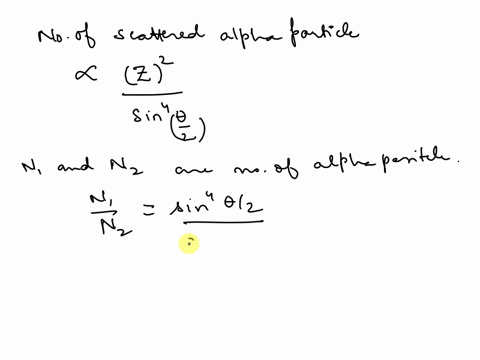 No. of scattered alpha particle
∝ (Z)²
sin⁴(θ/2)
N₁ and N₂ are no. of alpha paritcle.
N₁/N₂ = sin⁴ θ/2